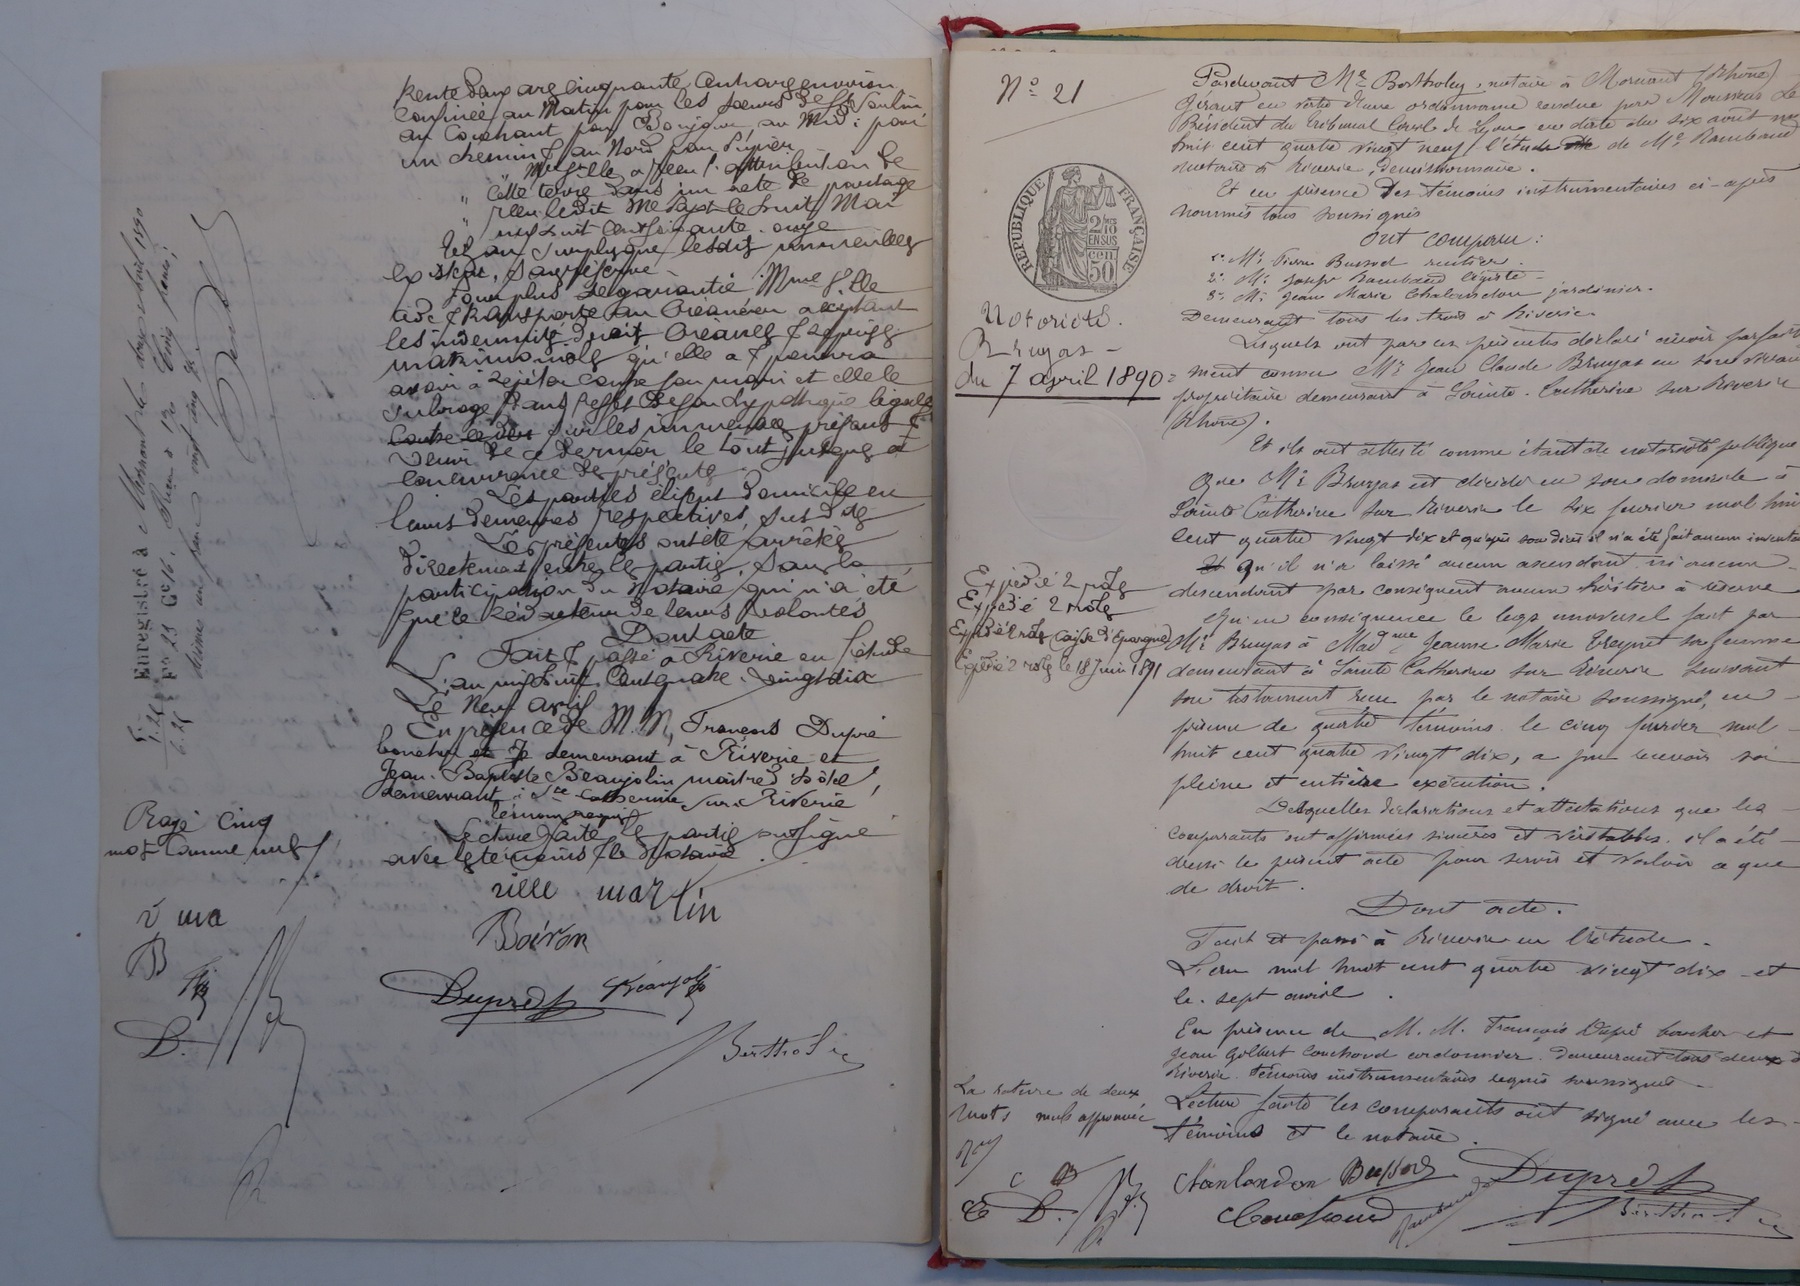 rente deux ares cinquante centiares environ
confinée au Matin par les sœurs de St Vincent
au couchant par Bonjour au Midi par
un chemin & au Nord par Pipier
Mme Gille a reçu l'attribution de
cette terre dans un acte de partage
reçu ledit Me le huit Mai
mil huit cent soixante onze
Tel au surplus que lesdits immeubles
existent, sans réserve
Pour plus de garantie Mme Gille
cède & transporte au créancier acceptant
les indemnités, droits, créances & reprises
matrimoniales qu'elle a & pourra
avoir à répéter contre son mari et elle le
subroge dans l'effet de son hypothèque légale
contre ce der sur les immeubles présents &
venir de ce dernier le tout jusqu'à
concurrence des présentes
Les parties élisent domicile en
leurs demeures respectives, susdites
Les présentes ont été arrêtées
directement entre les parties, sans la
participation du Notaire qui n'a été
que le rédacteur de leurs volontés
Dont acte
Fait & passé à Riverie en l'étude
L'an mil huit cent quatre vingt dix
Le Neuf avril
En présence de M.M. François Dupré
boucher et Je demeurant à Riverie et
Jean-Baptiste Beaujolin maître d'hôtel,
demeurant à Ste Catherine sur Riverie
témoins requis
Lecture faite les parties ont signé
avec les témoins & le Notaire.
Gille martin
Boiron
Dupré Beaujolin
Bertholey
Enregistré à Mornant le avril 1890
Fo 23 Co 6.
5..
1.25
6.25
Rayé cinq
mots comme nuls
B
D.
No 21
RÉPUBLIQUE FRANÇAISE
2/10 EN SUS
50 cen
Notoriété.
Bruyas
du 7 avril 1890
Expédié 2 rôles
Expédié 2 rôles
Expédié rôles Caisse d'épargne
Expédié 2 rôles le 18 Juin 1891
Pardevant Me Bertholey, notaire à Mornant (Rhône)
Gérant en vertu d'une ordonnance rendue par Monsieur Le
Président du tribunal Civil de Lyon en date du six août mil
huit cent quatre vingt neuf l'étude de Me Rambaud
notaire à Riverie, démissionnaire.
Et en présence des témoins instrumentaires ci-après
nommés tous soussignés
Ont comparu:
1o Mr Pierre Bussod rentier.
2o Mr Joseph Rambaud légiste
3o Mr Jean Marie Chalandon jardinier.
Demeurant tous les trois à Riverie
Lesquels ont par ces présentes déclaré avoir parfaite
ment connu Mr Jean Claude Bruyas en son vivant
propriétaire demeurant à Sainte-Catherine sur Riverie
(Rhône).
Et ils ont attesté comme étant de notoriété publique
Que Mr Bruyas est décédé en son domicile à
Sainte Catherine sur Riverie le six février mil huit
cent quatre vingt dix et qu'après son décès il n'a été fait aucun inventaire
Et qu'il n'a laissé aucun ascendant ni aucun
descendant par conséquent aucun héritier à réserve
Qu'en conséquence le legs universel fait par
Mr Bruyas à Madme Jeanne Marie sa femme
demeurant à Sainte Catherine sur Riverie suivant
son testament reçu par le notaire soussigné, en
présence de quatre témoins le cinq février mil
huit cent quatre vingt dix, a pu recevoir sa
pleine et entière exécution.
Desquelles déclarations et attestations que les
comparants ont affirmées sincères et véritables. il a été
dressé le présent acte pour servir et valoir ce que
de droit.
Dont acte.
Fait et passé à Riverie en l'étude.
L'an mil huit cent quatre vingt dix et
le sept avril.
En présence de M. M. François Dupré boucher et
Jean Gilbert Couchoud cordonnier. Demeurant tous deux à
Riverie. témoins instrumentaires requis soussignés
Lecture faite les comparants ont signé avec les
témoins et le notaire.
La rature de deux
mots nuls approuvée
C B
C D.
Chanlandon Bussod Dupré
Couchoud Rambaud Bertholey